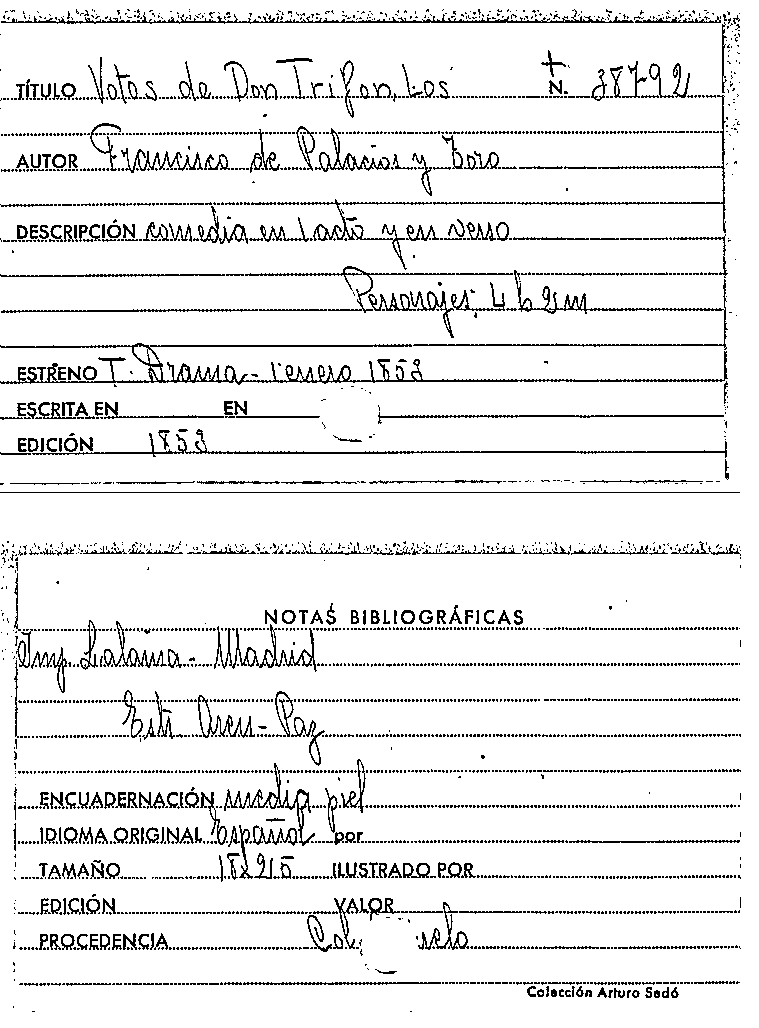 TÍTULO Votos de Don Trifon, Los N. 38792
AUTOR Francisco de Palacios y Toro
DESCRIPCIÓN comedia en 1 acto y en verso
Personajes: 4 h 2 m
ESTRENO T. Drama - enero 1853
ESCRITA EN EN
EDICIÓN 1853
NOTAS BIBLIOGRÁFICAS
Imp. Lalama - Madrid
Estr Paz
ENCUADERNACIÓN media piel
IDIOMA ORIGINAL Español por
TAMAÑO ILUSTRADO POR
EDICIÓN VALOR
PROCEDENCIA Col.
Colección Arturo Sedó